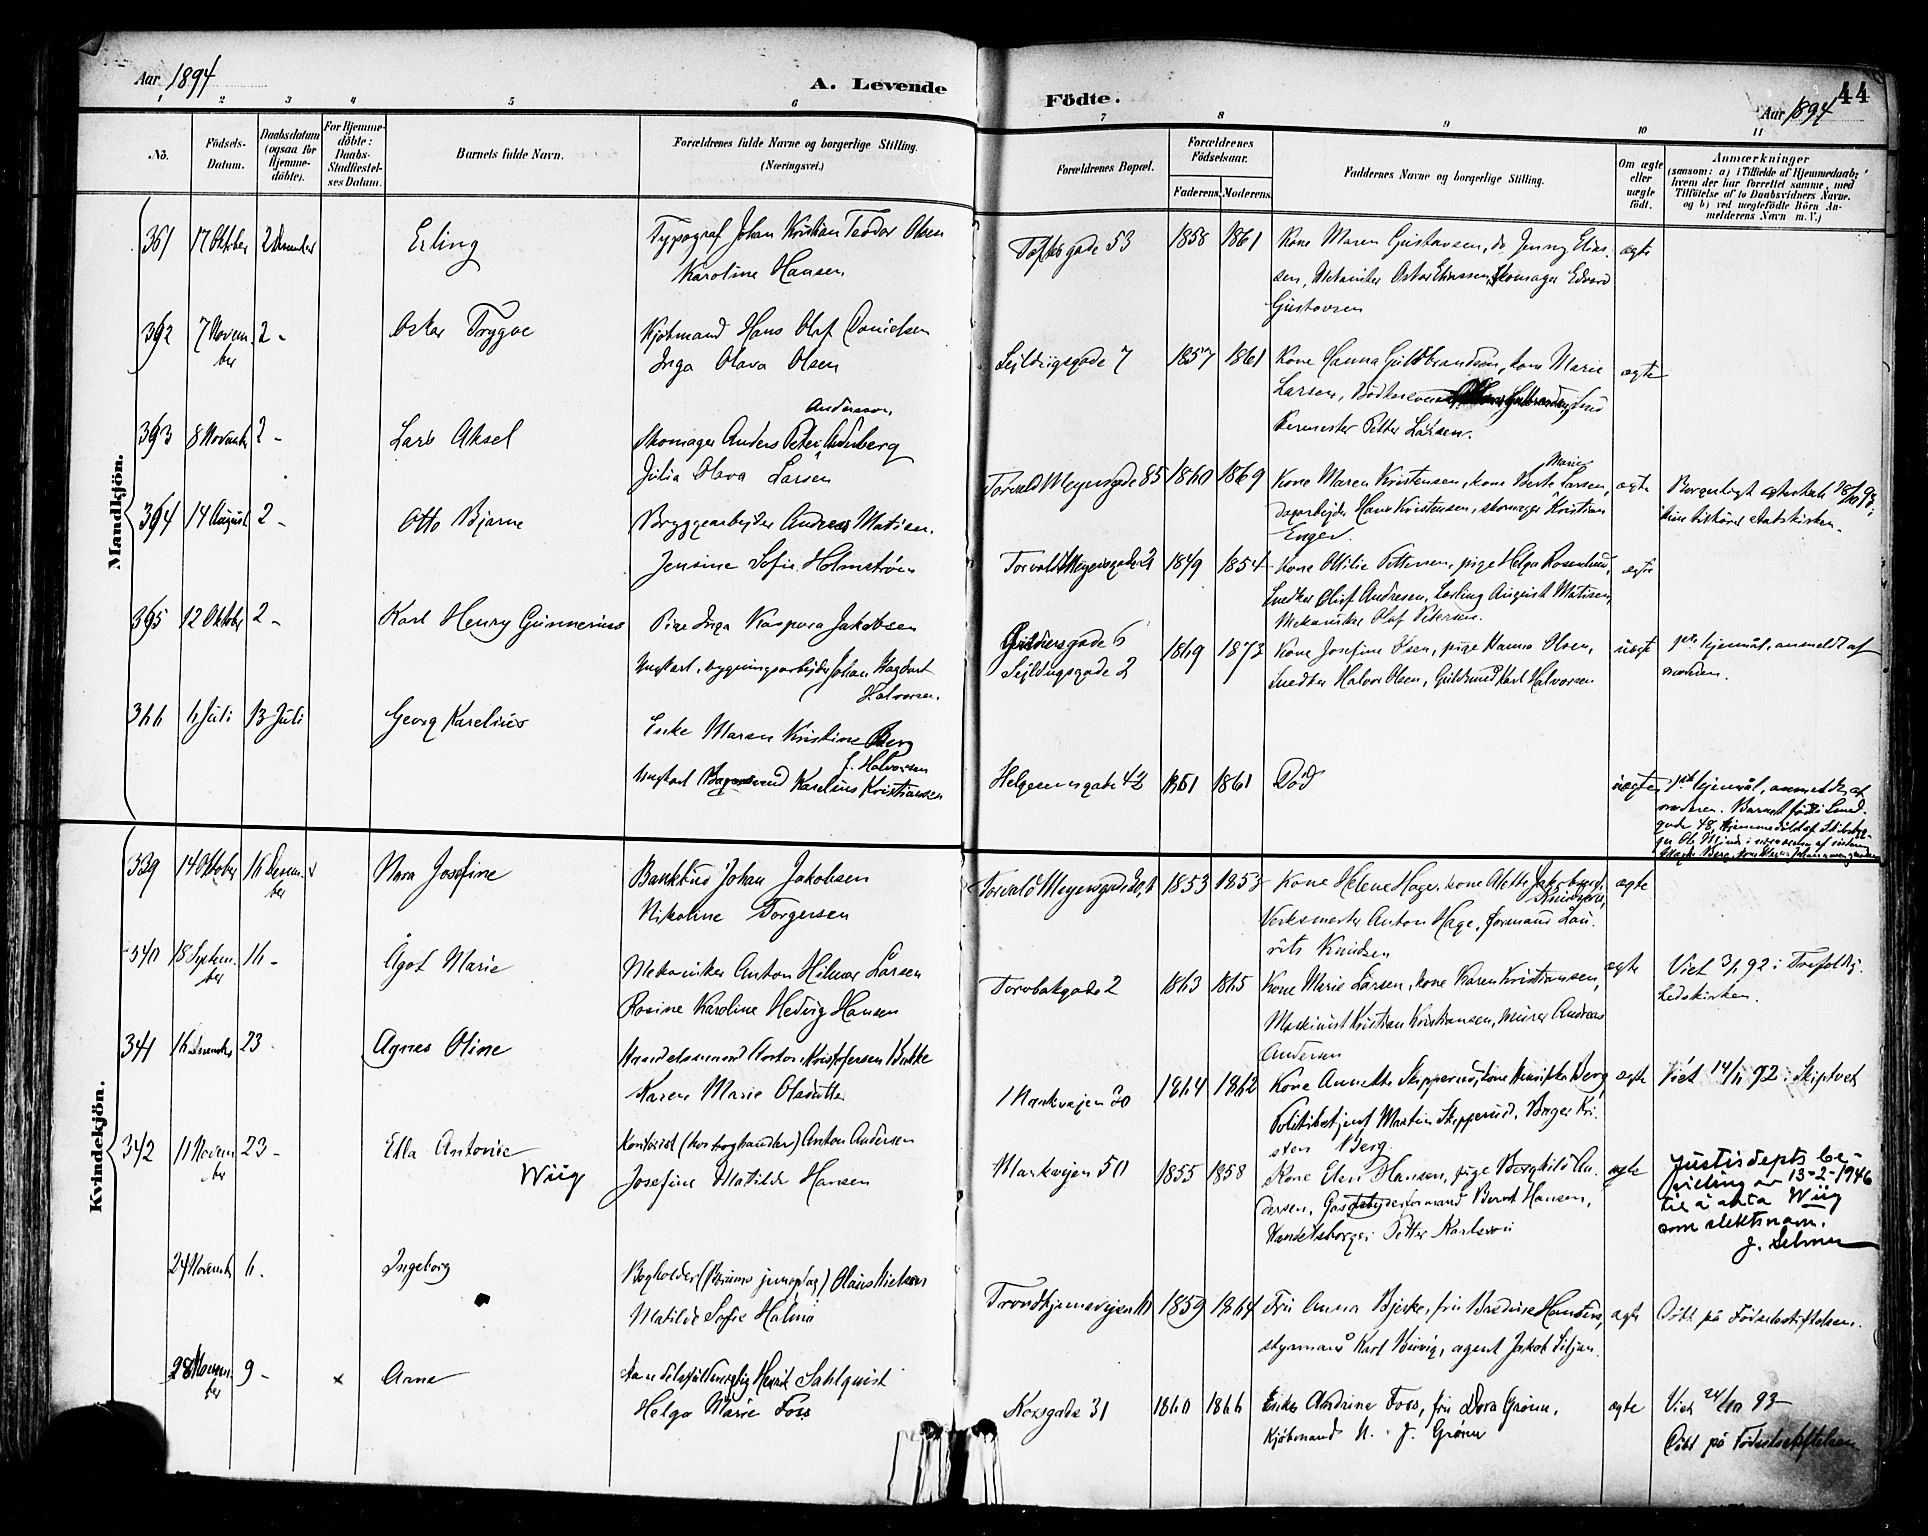 Aar 1894
A. Levende
Födte.
44
Aar 1894
1 2 3 4 5 6 7 8 9 10 11
No.
Födsels-
Datum.
Daabsdatum
(ogsaa for
Hjemme-
döbte).
For Hjemme-
döbte:
Daabs-
Stadfæstel-
ses Datum.
Barnets fulde Navn.
Forældrenes fulde Navne og borgerlige Stilling.
(Næringsvei.)
Forældrenes Bopæl.
Forældrenes
Födselsaar.
Faderens. Moderens.
Faddernes Navne og borgerlige Stilling.
Om ægte
eller
uægte
födt.
Anmærkninger
(saasom: a) i Tilfælde af Hjemmedaab:
hvem der har forrettet samme, med
Tilföielse af to Daabsvidners Navne.
og b) ved uegtefödte Börn An-
melderens Navn m. V.)
Mandkjön.
361 17 Oktober 2 Desember Erling Typograf Johan Kristian Teodor Olsen
Karoline Hansen
Toftesgade 53 1858 1861 Kone Maren Gustavsen, do Jenny Elias-
sen, Mekaniker Oskar Eliassen, Skomager Edvard
Gustavsen
ægte
392 7 Novem-
ber
2 - Oskar Trygve Kjöbmand Hans Olaf Danielsen
Inga Olava Olsen
Seildugsgade 7 1857 1861 Kone Hanna Guldbrandsen, kone Marie
Larsen, Bödker
Petter Larsen.
ægte
393 8 Novemb 2 - Lars Aksel Skomager Anders Peter
Andersson
Julia Olava Larsen
Torvald Meyersgade 85 1860 1869 Kone Maren Kristensen, kone Berte Larsen,
Marie
dagarbejder Hans Kristensen, skomager Kristian
Enger.
ægte
Borgerligt
394 14 August 2 - Otto Bjarne Bryggearbejder Andreas Matisen.
Jensine Sofie Holmström
Torvald Meyersgade 21 1849 1854 Kone Otilie Pettersen, pige Helga Rosenlund,
Snedker Olaf Andresen, Lærling August Matisen,
Mekaniker Olaf Petersen.
ægte
395 12 Oktober 2 - Karl Henry Gunnerius Pige Inga Kaspara Jakobsen
Ungkarl, bygningsarbejder Johan Hagbart
Halvorsen.
Seildugsgade 2 1869 1873 Kone Josefine Olsen, pige Hanna Olsen,
Snedker Halvor Olsen, Guldsmed Karl Halvorsen
uægte
anmeldt af
moderen.
366 6 Juli 13 Juli Georg Karelius Enke Maren Kristine Berg
f. Halvorsen
Ungkarl Karelius Kristiansen
Helgesensgade 42 1861 1861 Död
uægte
anmeldt af
moderen. Barnet född i Smed-
gade 48,
Kvindekjön.
339 14 Oktober 16 Desem-
ber
Nora Josefine Bankbud Johan Jakobsen
Nikoline Torgersen
Torvald Meyersgade 30,1 1853 1853 Kone Helene Hage, kone Alette
Knudsen,
Verksmester Anton Hage, formand Lau-
rits Knudsen
ægte
340 18 Septem-
ber
16 - Ågot Marie Mekaniker Anton Hilmar Larsen
Rosine Karoline Hedvig Hansen
Torvbakgade 2 1863 1865 Kone Marie Larsen, kone Karen Kristiansen,
Maskinist Kristian Kristiansen, murer Andreas
Andersen
ægte
Viet 3/1 92 i Trefoldig-
hedskirken.
341 16 23 - Agnes Oline Handelsmand Anton Kristofersen Bakke
Karen Marie Olsdatter
Markvejen 20 1864 1862 Kone Annette Skipperud, kone Henrikke Berg
Politibetjent Martin Skipperud, Bager Kri-
sten Berg.
ægte
Viet 14/11 92 i Skiptvet
342 11 Novem
ber
23 - Ella Antonie
Wiig
Kontorist (hos boghandler) Anton Andersen
Josefine Matilde Hansen
Markvejen 50 1855 1858 Kone Elen Hansen, pige Borghild An-
dersen, Gasarbejderformand Bernt Hansen,
Handelsborger Petter Karlsen
ægte
Justisdepts be-
villing av 13-2-1946
til å anta Wiig
som slektsnavn.
J. Selmer
24 Novemb 6. Ingeborg Bogholder Olaus Nielsen
Matilde Sofie Holmö
Trondhjemsvejen 10 1859 1864 Fru Anna Bjerke, fru Hansen,
styrmand Karl, agent Jakob Siljan.
ægte
Döbt på Födselsstiftelsen.
28 Novem-
ber
9 - x Arne
Henrik Sahlquist
Helga Marie Foss
Korsgade 31 1860 1866 Enke Andrine Foss, fru Dora Grönn,
Kjöbmand N. J. Grönn
ægte
Viet 24/10 93
Döbt på Födselsstiftelsen